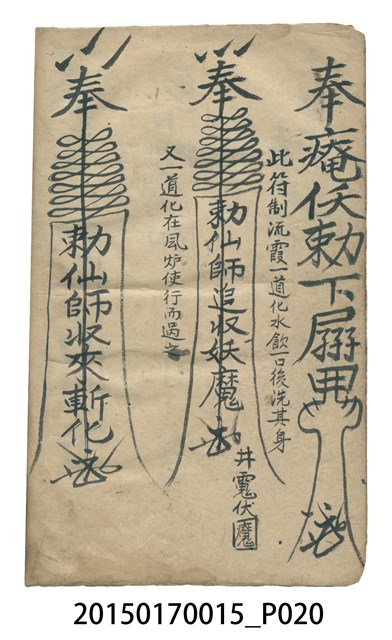 奉
敕下
此符制流霞一道化水飲一口後洗其身
奉
勅仙師追收妖魔
井 伏魔
又一道化在風炉使行而過
奉
勅仙師收來斬化
20150170015_P020